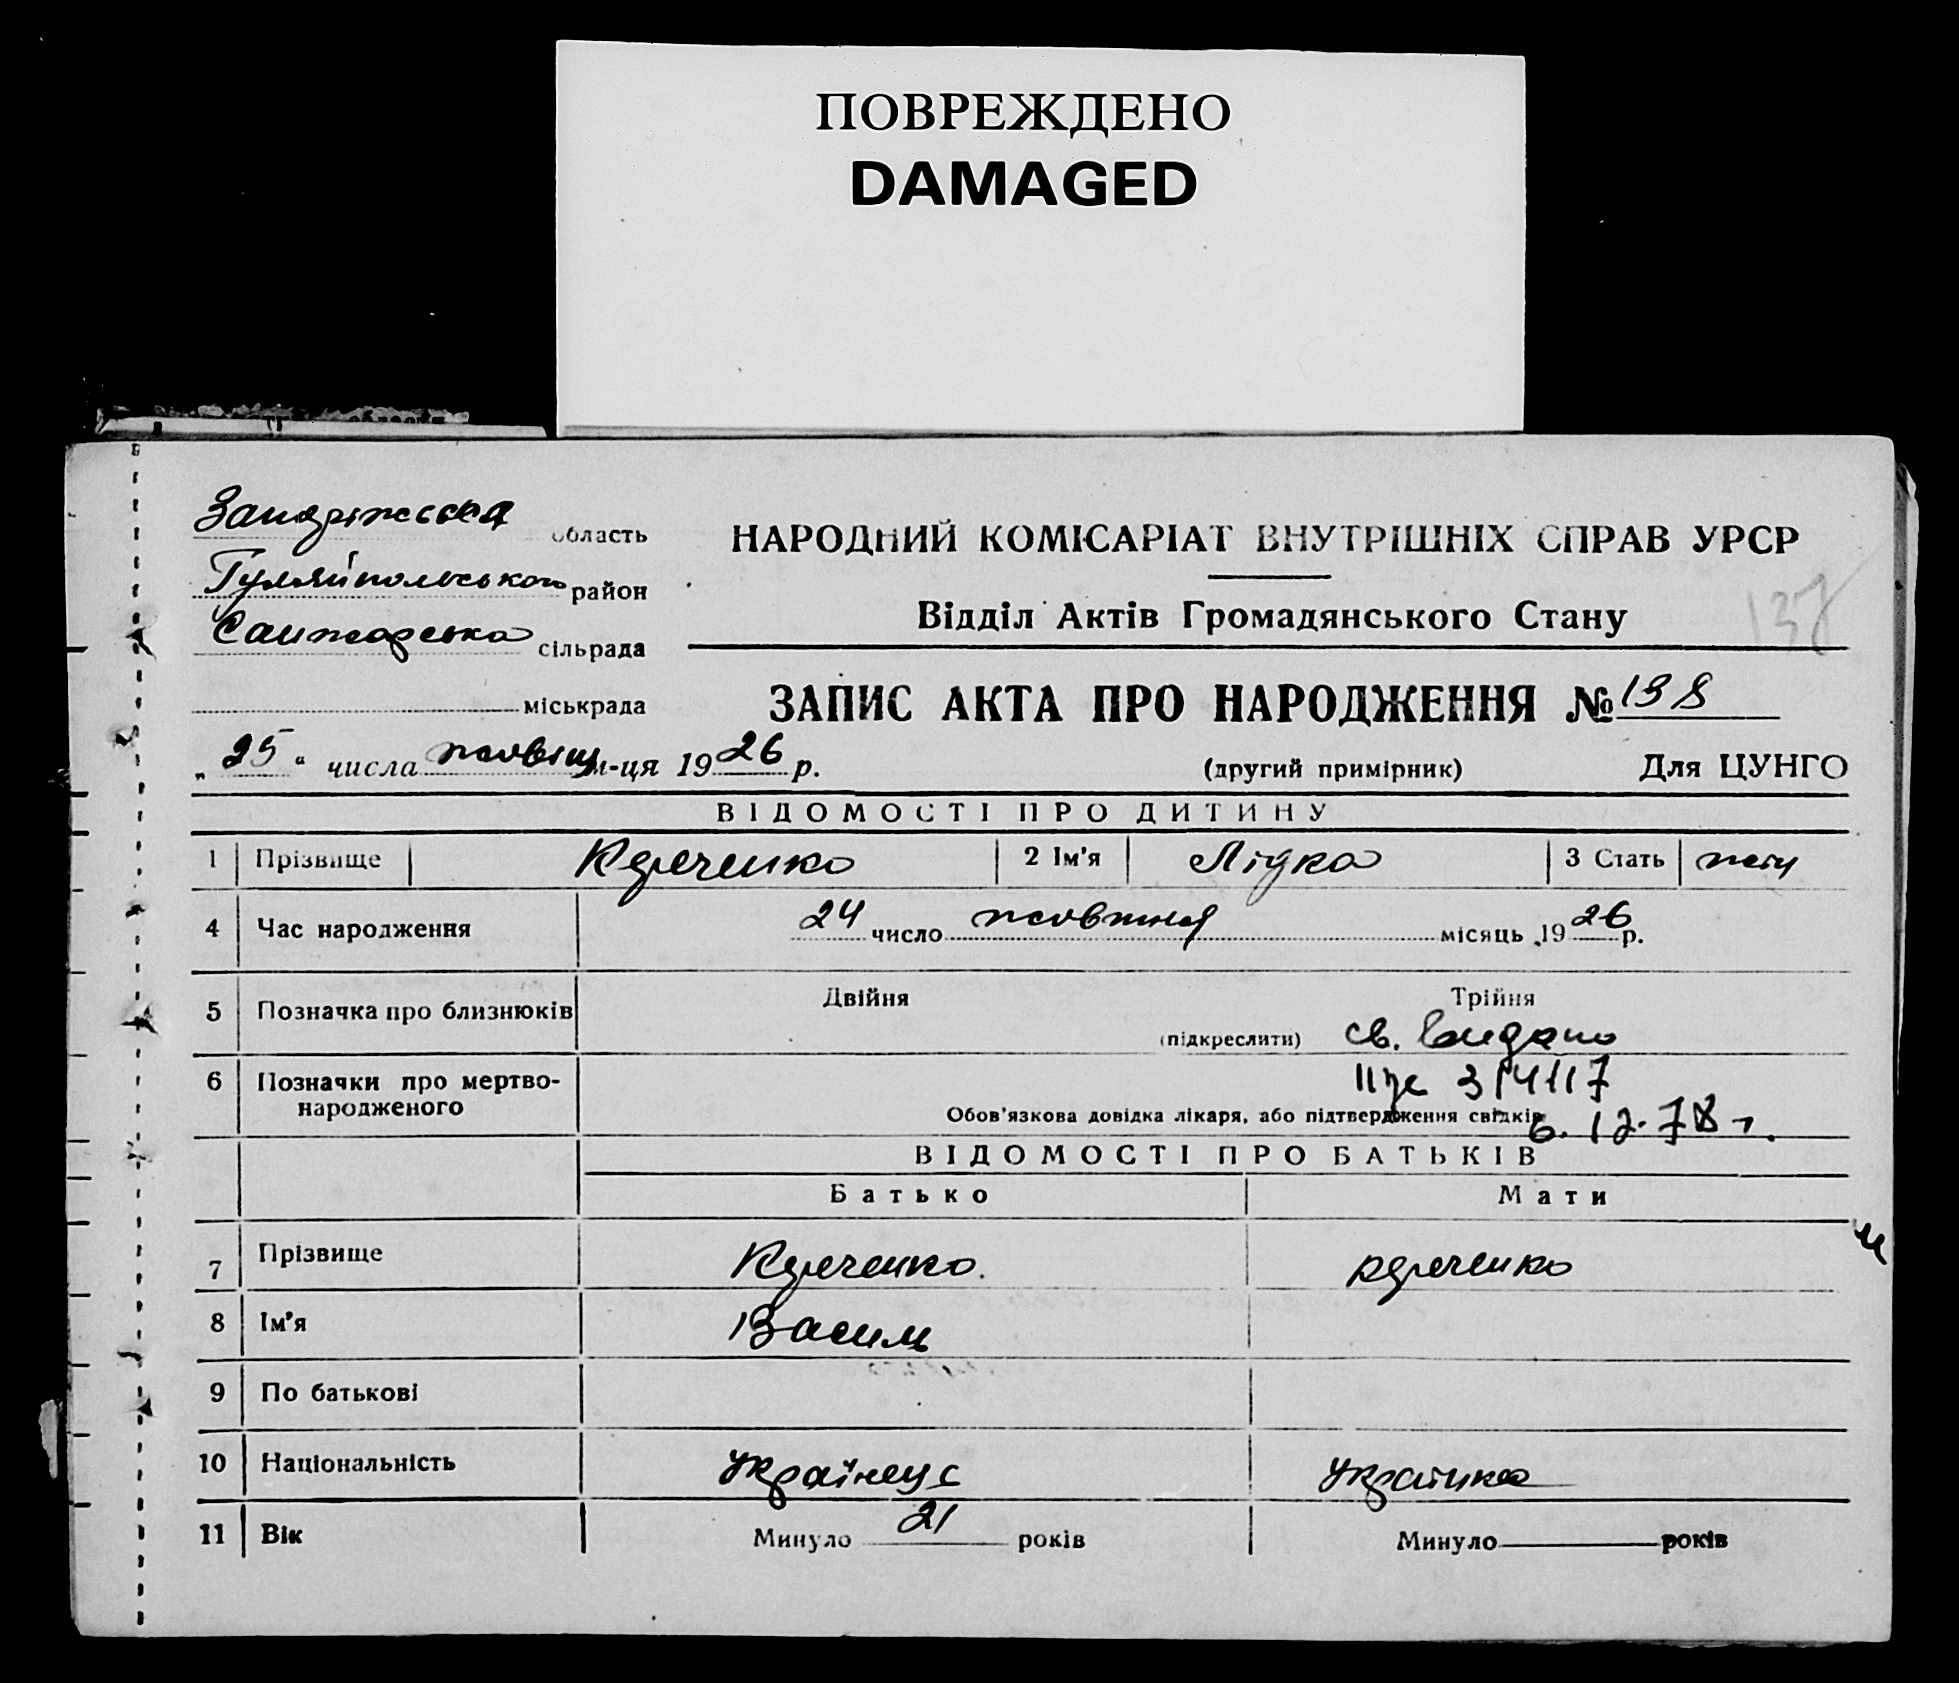 ПОВРЕЖДЕНО
DAMAGED
Запоріжська область
Гуляйпольського район
сільрада
міськрада
НАРОДНИЙ КОМІСАРІАТ ВНУТРІШНІХ СПРАВ УРСР
Відділ Актів Громадянського Стану
137
ЗАПИС АКТА ПРО НАРОДЖЕННЯ № 138
„ 25 “ числа м-ця 1926 р.
(другий примірник) Для ЦУНГО
ВІДОМОСТІ ПРО ДИТИНУ
1 Прізвище 2 Ім'я Лідка 3 Стать жін
4 Час народження 24 число жовтня місяць 1926 р.
5 Позначка про близнюків Двійня Трійня
(підкреслити) св. видано
6 Позначки про мертво-
народженого
314117
Обов'язкова довідка лікаря, або підтвердження свідків
6.12.78 г.
ВІДОМОСТІ ПРО БАТЬКІВ
Батько Мати
7 Прізвище
8 Ім'я Василь
9 По батькові
10 Національність Українець Українка
11 Вік Минуло 21 років Минуло років